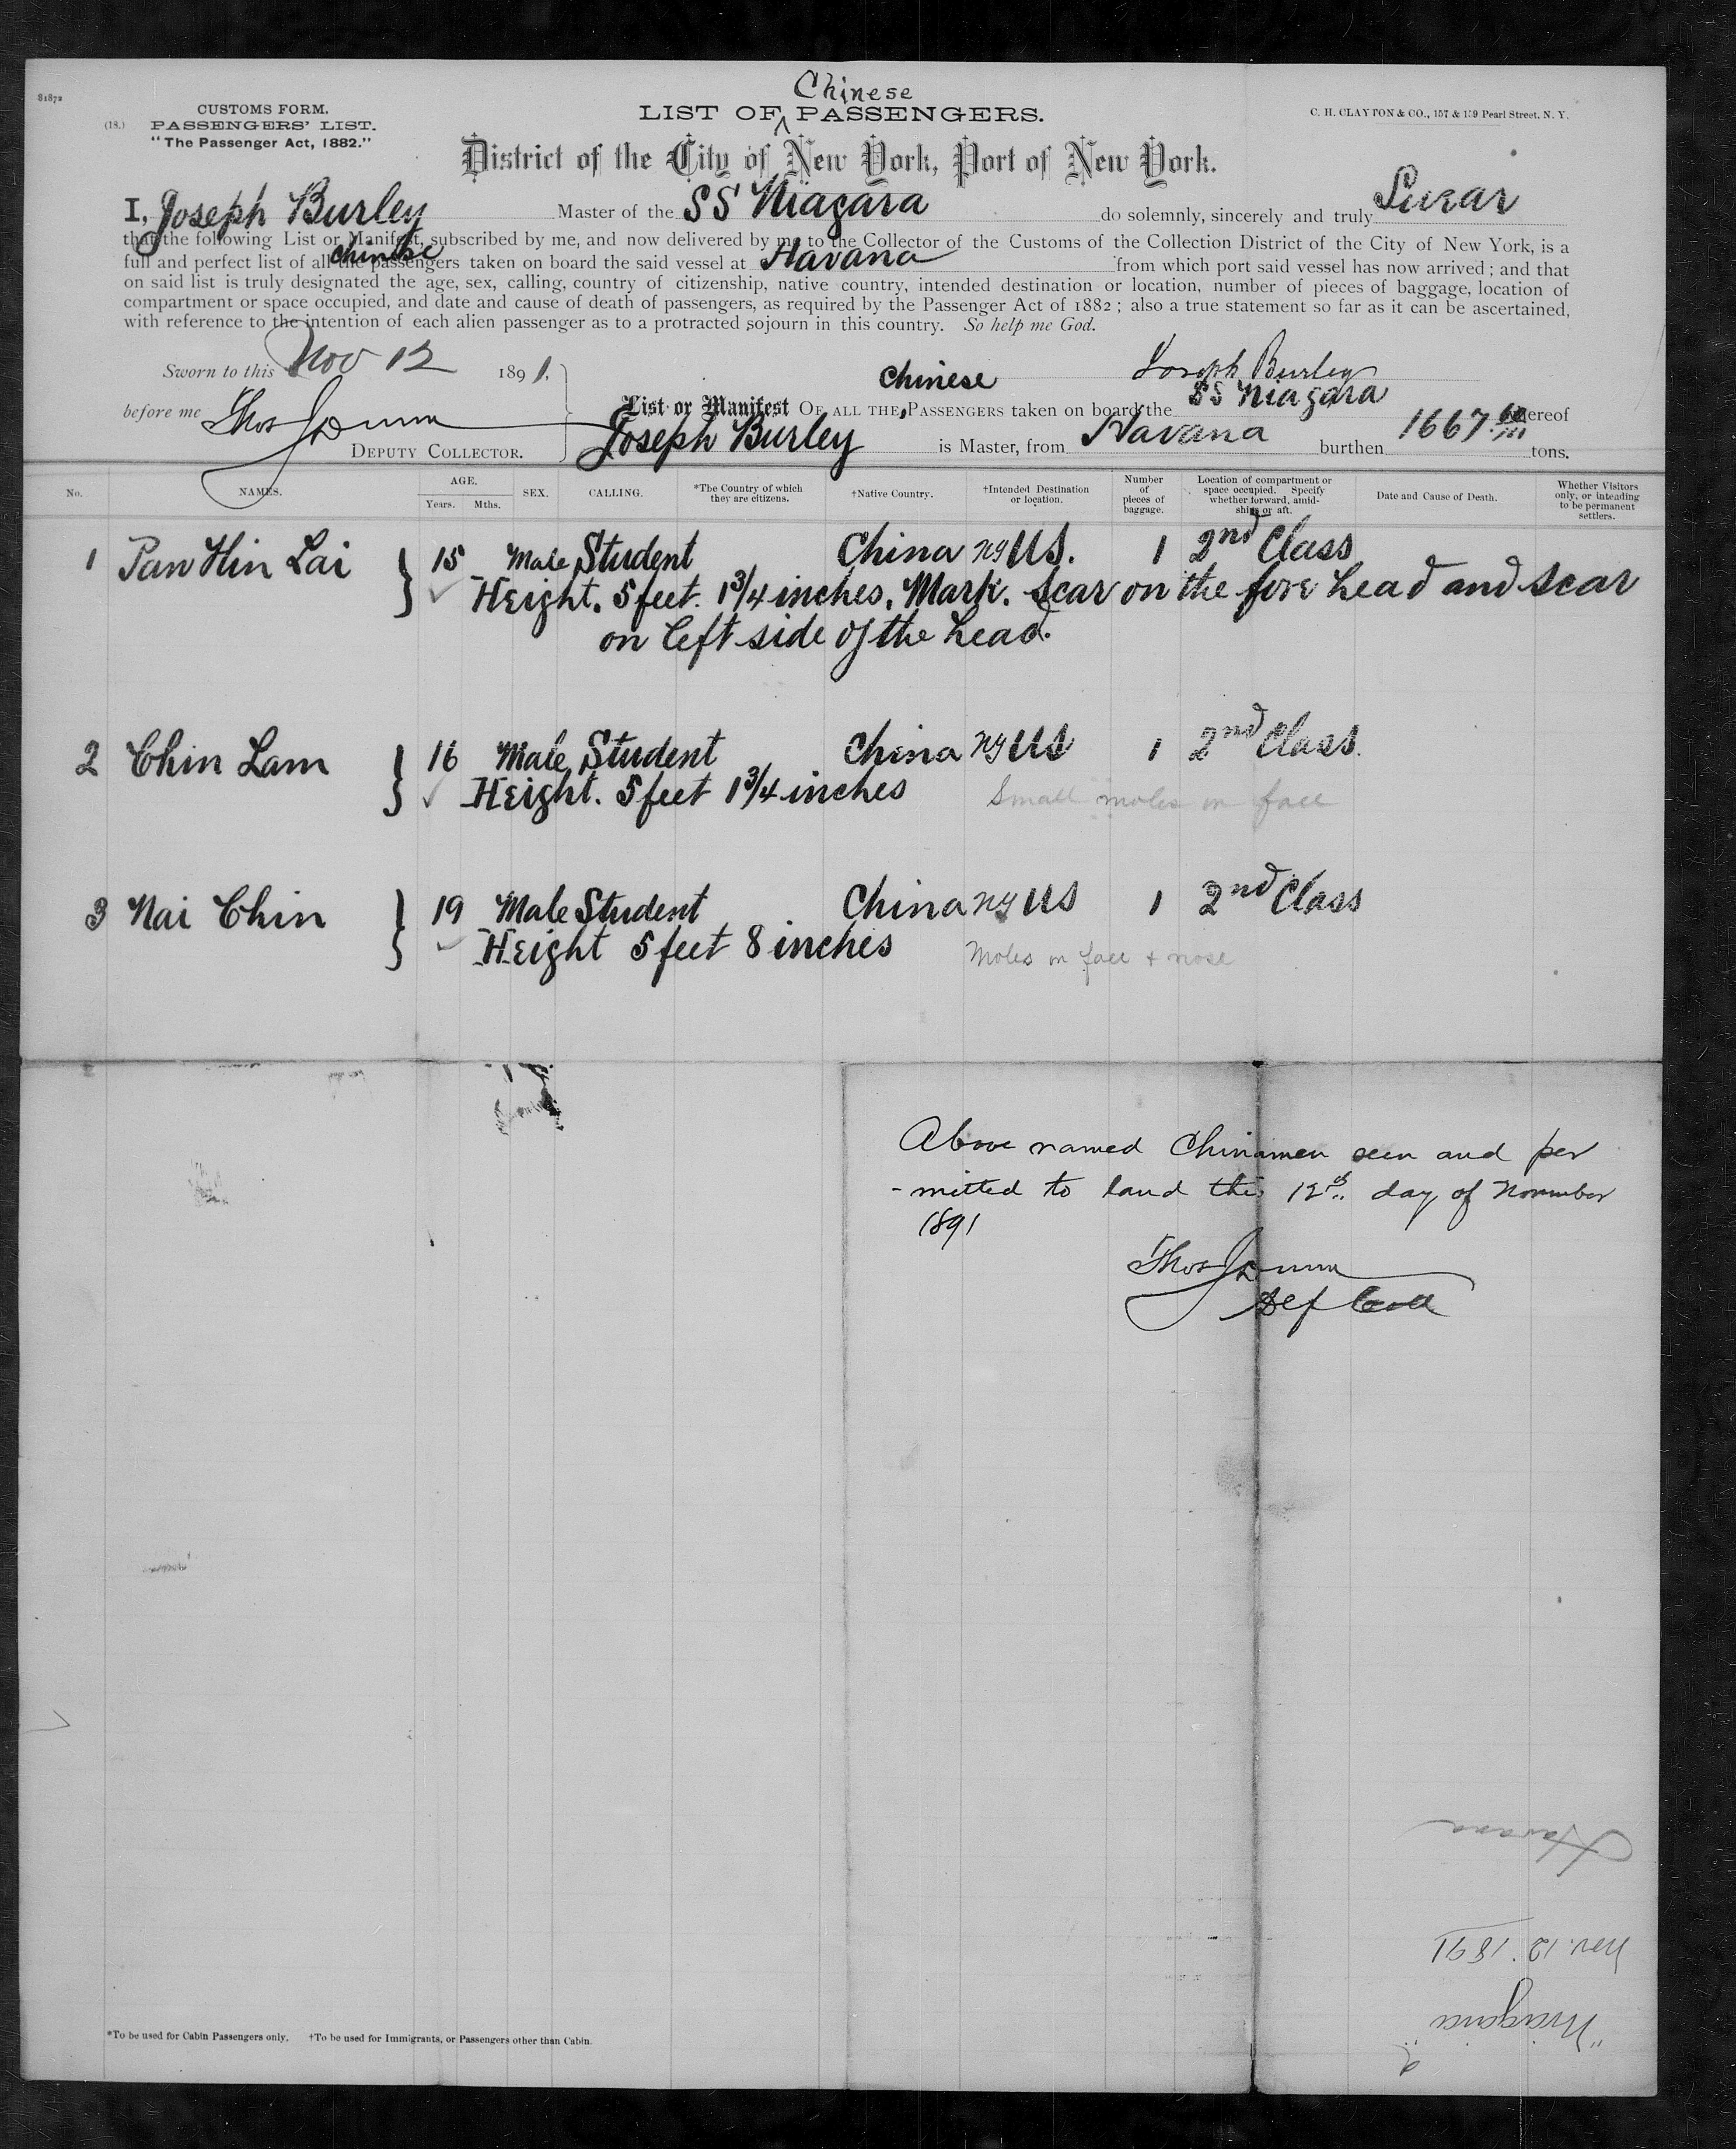 81872
Chinese
CUSTOMS FORM.
LIST OF PASSENGERS.
C. H. CLAYTON & CO., 157 & 159 Pearl Street, N. Y.
(18.) PASSENGERS' LIST.
"The Passenger Act, 1882."
District of the City of New York, Port of New York.
I, Joseph Burley Master of the SS Niagara do solemnly, sincerely and truly Swear
that the following List or Manifest, subscribed by me, and now delivered by me to the Collector of the Customs of the Collection District of the City of New York, is a
full and perfect list of all the chinese passengers taken on board the said vessel at Havana from which port said vessel has now arrived; and that
on said list is truly designated the age, sex, calling, country of citizenship, native country, intended destination or location, number of pieces of baggage, location of
compartment or space occupied, and date and cause of death of passengers, as required by the Passenger Act of 1882; also a true statement so far as it can be ascertained,
with reference to the intention of each alien passenger as to a protracted sojourn in this country. So help me God.
Sworn to this Nov 12 1891,
Joseph Burley
before me Thos
DEPUTY COLLECTOR.
Chinese
List or Manifest OF ALL THE PASSENGERS taken on board the SS Niagara whereof
Joseph Burley is Master, from Havana burthen 1667 tons.
No. NAMES. AGE. Years. Mths. SEX. CALLING. *The Country of which they are citizens. †Native Country. †Intended Destination or location. Number of pieces of baggage. Location of compartment or space occupied. Specify whether forward, amidships or aft. Date and Cause of Death. Whether Visitors only, or intending to be permanent settlers.
1 Pan Hin Lai } 15 Male Student China NY US. 1 2nd Class
Height. 5 feet. 1 3/4 inches. Mark. Scar on the fore head and scar
on left side of the head.
2 Chin Lam } 16 Male Student China NY US 1 2nd Class.
Height. 5 feet 1 3/4 inches Small moles on face
3 Nai Chin } 19 Male Student China NY US 1 2nd Class
Height 5 feet 8 inches Moles on face + nose
Above named Chinamen seen and per
-mitted to land this 12th day of November
1891
Thos
Dep Coll
Havana
Nov. 12. 1891
"Niagara"
*To be used for Cabin Passengers only. †To be used for Immigrants, or Passengers other than Cabin.